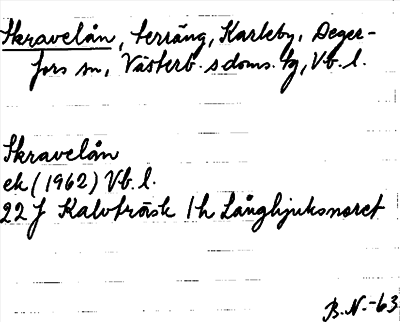 Skravelån, terräng, Karleby, Deger-
fors sn, Västerb. s doms. tg, Vb. l.
Skravelån
ek (1962) Vb. l.
22 J Kalvträsk 1h Långhjuksnoret
B.N.-63